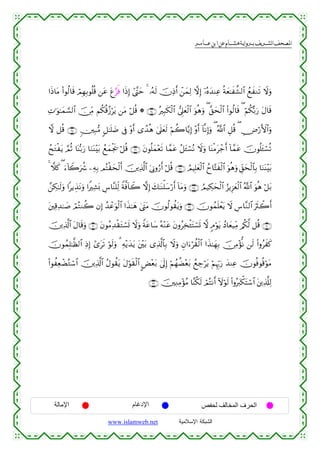 المصحف الشريف برواية هشام عن ابن عامر
وَلَا تَنفَعُ ٱلشَّفَٰعَةُ عِندَهُۥٓ إِلَّا لِمَنْ أَذِنَ لَهُۥ ۚ حَتَّىٰٓ إِذَا فَزَّعَ عَن قُلُوبِهِمْ قَالُوا۟ مَاذَا
قَالَ رَبُّكُمْ ۖ قَالُوا۟ ٱلْحَقَّ ۖ وَهُوَ ٱلْعَلِىُّ ٱلْكَبِيرُ ۞ قُلْ مَن يَرْزُقُكُم مِّنَ ٱلسَّمَٰوَٰتِ
وَٱلْأَرْضِ ۖ قُلِ ٱللَّهُ ۖ وَإِنَّآ أَوْ إِيَّاكُمْ لَعَلَىٰ هُدًى أَوْ فِى ضَلَٰلٍ مُّبِينٍ قُل لَّا
تُسْـَٔلُونَ عَمَّآ أَجْرَمْنَا وَلَا نُسْـَٔلُ عَمَّا تَعْمَلُونَ قُلْ يَجْمَعُ بَيْنَنَا رَبُّنَا ثُمَّ يَفْتَحُ
بَيْنَنَا بِٱلْحَقِّ وَهُوَ ٱلْفَتَّاحُ ٱلْعَلِيمُ قُلْ أَرُونِىَ ٱلَّذِينَ أَلْحَقْتُم بِهِۦ شُرَكَآءَ ۖ كَلَّا ۚ
بَلْ هُوَ ٱللَّهُ ٱلْعَزِيزُ ٱلْحَكِيمُ وَمَآ أَرْسَلْنَٰكَ إِلَّا كَآفَّةً لِّلنَّاسِ بَشِيرًا وَنَذِيرًا وَلَٰكِنَّ
أَكْثَرَ ٱلنَّاسِ لَا يَعْلَمُونَ وَيَقُولُونَ مَتَىٰ هَٰذَا ٱلْوَعْدُ إِن كُنتُمْ صَٰدِقِينَ
قُل لَّكُم مِّيعَادُ يَوْمٍ لَّا تَسْتَـْٔخِرُونَ عَنْهُ سَاعَةً وَلَا تَسْتَقْدِمُونَ وَقَالَ ٱلَّذِينَ
كَفَرُوا۟ لَن نُّؤْمِنَ بِهَٰذَا ٱلْقُرْءَانِ وَلَا بِٱلَّذِى بَيْنَ يَدَيْهِ ۗ وَلَوْ تَرَىٰٓ إِذِ ٱلظَّٰلِمُونَ
مَوْقُوفُونَ عِندَ رَبِّهِمْ يَرْجِعُ بَعْضُهُمْ إِلَىٰ بَعْضٍ ٱلْقَوْلَ يَقُولُ ٱلَّذِينَ ٱسْتُضْعِفُوا۟
لِلَّذِينَ ٱسْتَكْبَرُوا۟ لَوْلَآ أَنتُمْ لَكُنَّا مُؤْمِنِينَ
الحرف المخالف لحفص الإدغام الإمالة
الشبكة الإسلامية www.islamweb.net